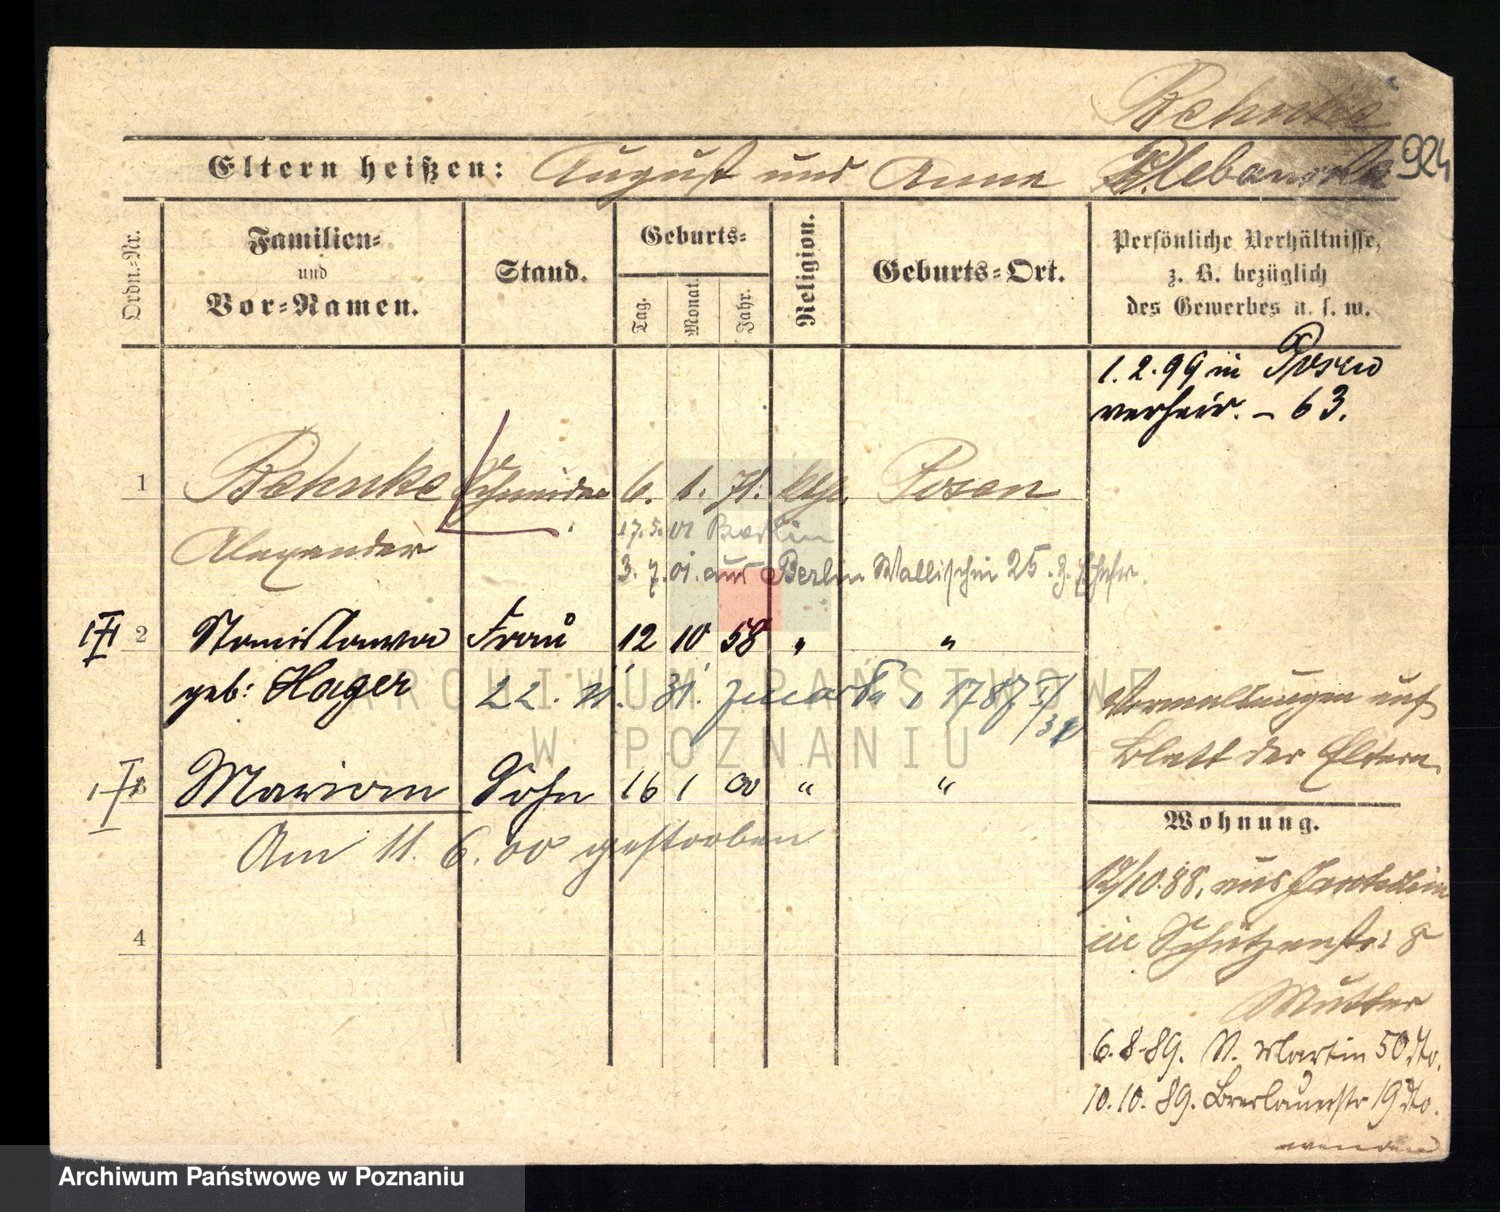 Behnke
924
Eltern heißen: August und Anne Klebanoska
Ordn.-Nr.
Familien-
und
Vor-Namen.
Stand.
Geburts-
Tag.
Monat.
Jahr.
Religion.
Geburts-Ort.
Persönliche Verhältnisse,
z. B. bezüglich
des Gewerbes u. s. w.
1. 2. 99 in Posen
verheir. - 63.
1 Behnke Schneider 6. 1. 71. kth. Posen
Alexander
17. 5. 01 Berlin
3. 7. 01. aus Berlin Wallischei 25. b.
2 Stanislawa Frau 12 10 58 " "
geb: Hager
22. 11. 31.
Vermeldungen auf
Blatt der Eltern.
Marian Sohn 16 1 00 " "
Am 11. 6. 00 gestorben
4
Wohnung.
12/10. 88. aus
in Schützenstr: 8
Mutter
6. 8. 89. St. Martin 50 dto.
10. 10. 89. Breslauerstr 19 dto.
wenden
ARCHIWUM PAŃSTWOWE
W POZNANIU
Archiwum Państwowe w Poznaniu